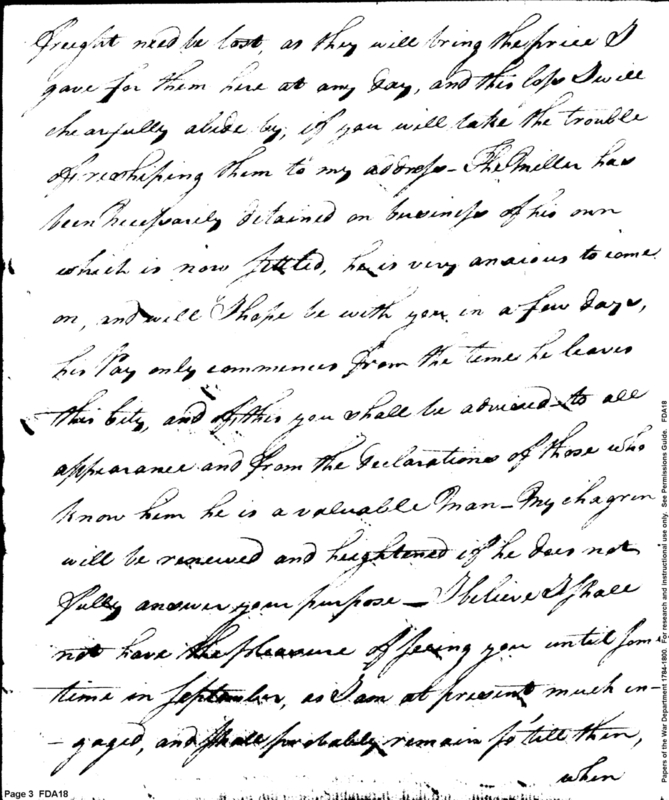 freight need be lost, as they will bring the price I
gave for them here at any day, and this loss I will
chearfully abide by, if you will take the trouble
of reshiping them to my address - The Miller has
been necessarily detained on business of his own
which is now settled, he is very anxious to come
on, and will I hope be with you in a few days,
his Pay only commences from the time he leaves
this City, and of this you shall be advised - to all
appearance and from the declarations of those who
know him he is a valuable Man - My chagrin
will be renewed and heightened if he does not
fully answer your purpose - I believe I shall
not have the pleasure of seeing you until some
time in September, as I am at present much in-
- gaged, and shall probably remain so 'till then,
when
Page 3 FDA18
Papers of the War Department 1784-1800. For research and instructional use only. See Permissions Guide. FDA18